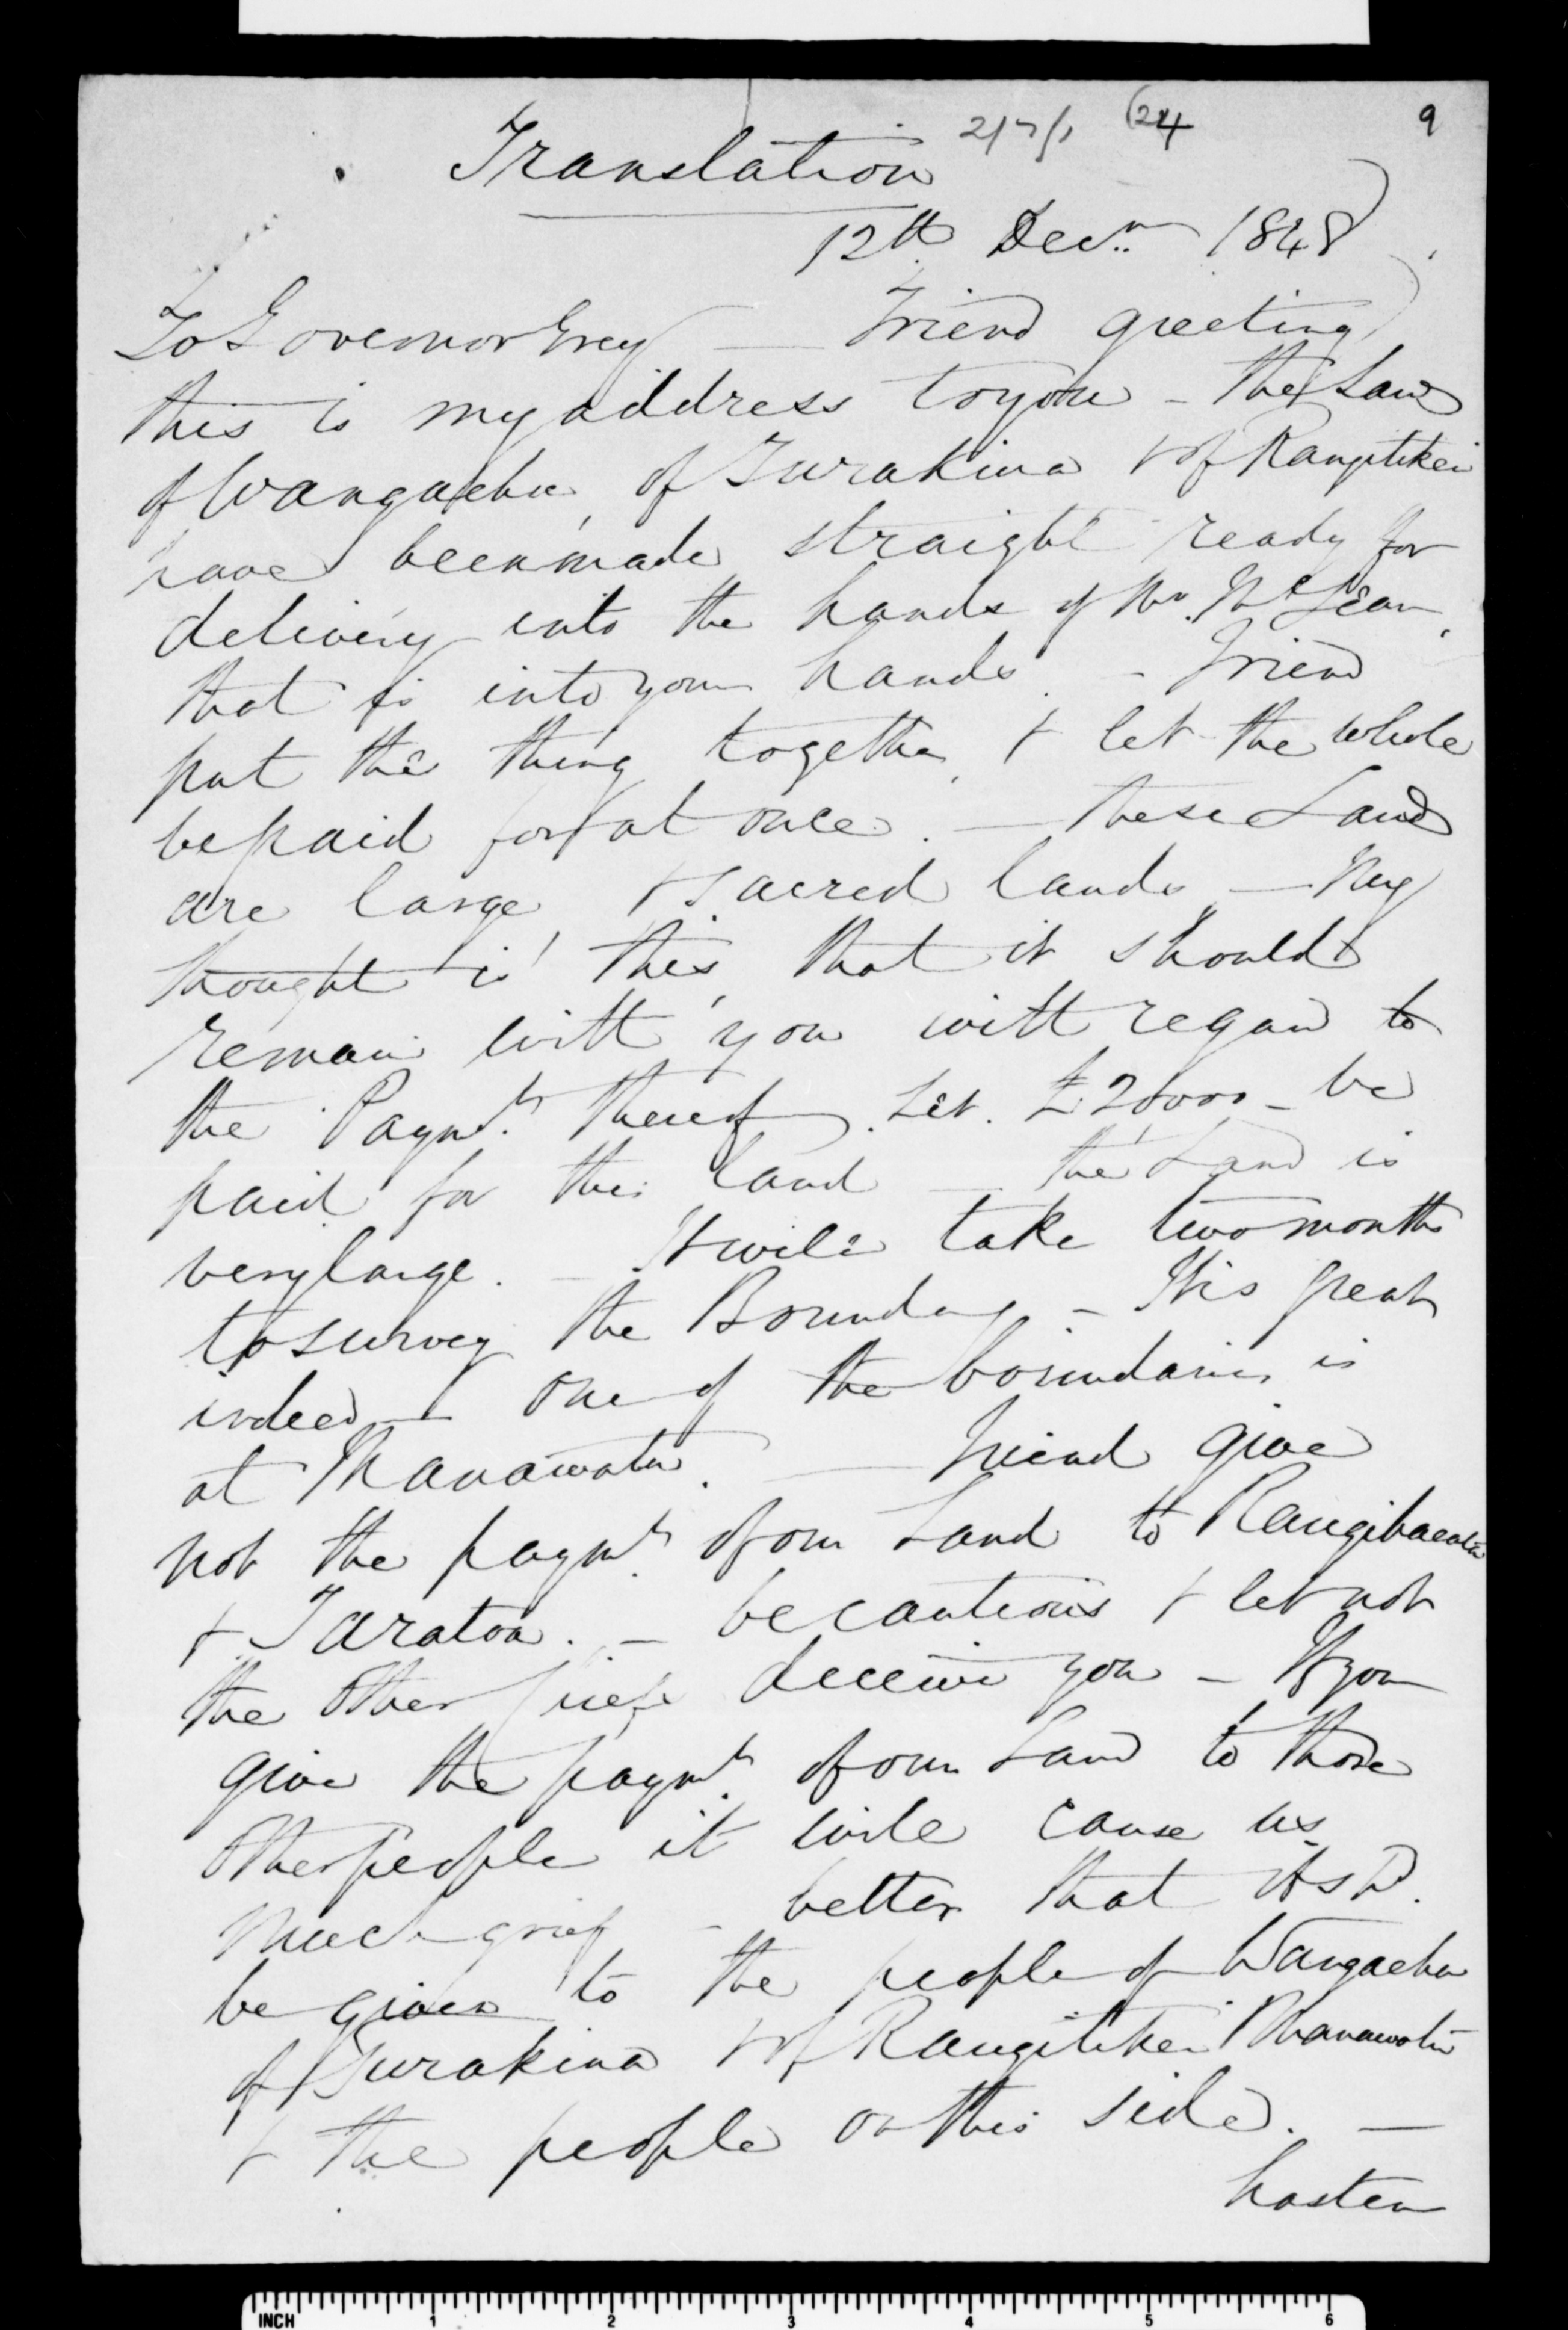 Translation (24 9
12th Decr. 1848
To Governor Grey — Friend greeting
this is my address to you - the Land
of Wangaehu, of Turakina & of Rangitikei
have been made straight ready for
delivery into the hands of Mr. McLean,
that is into your hands. - Friend
put the thing together, & let the whole
be paid for at once. — these Land
are large, & sacred lands — My
thought is this, that it should
remain with you with regard to
the Paymt. thereof. Let be
paid for this land — the Land is
very large. - It will take two months
to survey the Boundary - It is great
indeed — One of the boundaries is
at Manawatu. — Friend give
not the paymt. of our Land to Rangihaeata
& Taratoa. — be cautious & let not
the other deceive you - If you
give the paymt. of our Land to those
other people it will cause us
much grief - better that it shd.
be given to the people of Wangaehu
of Turakina & of Rangitikei Manawatu
& the people on this side. —
hasten
INCH 1 2 3 4 5 6